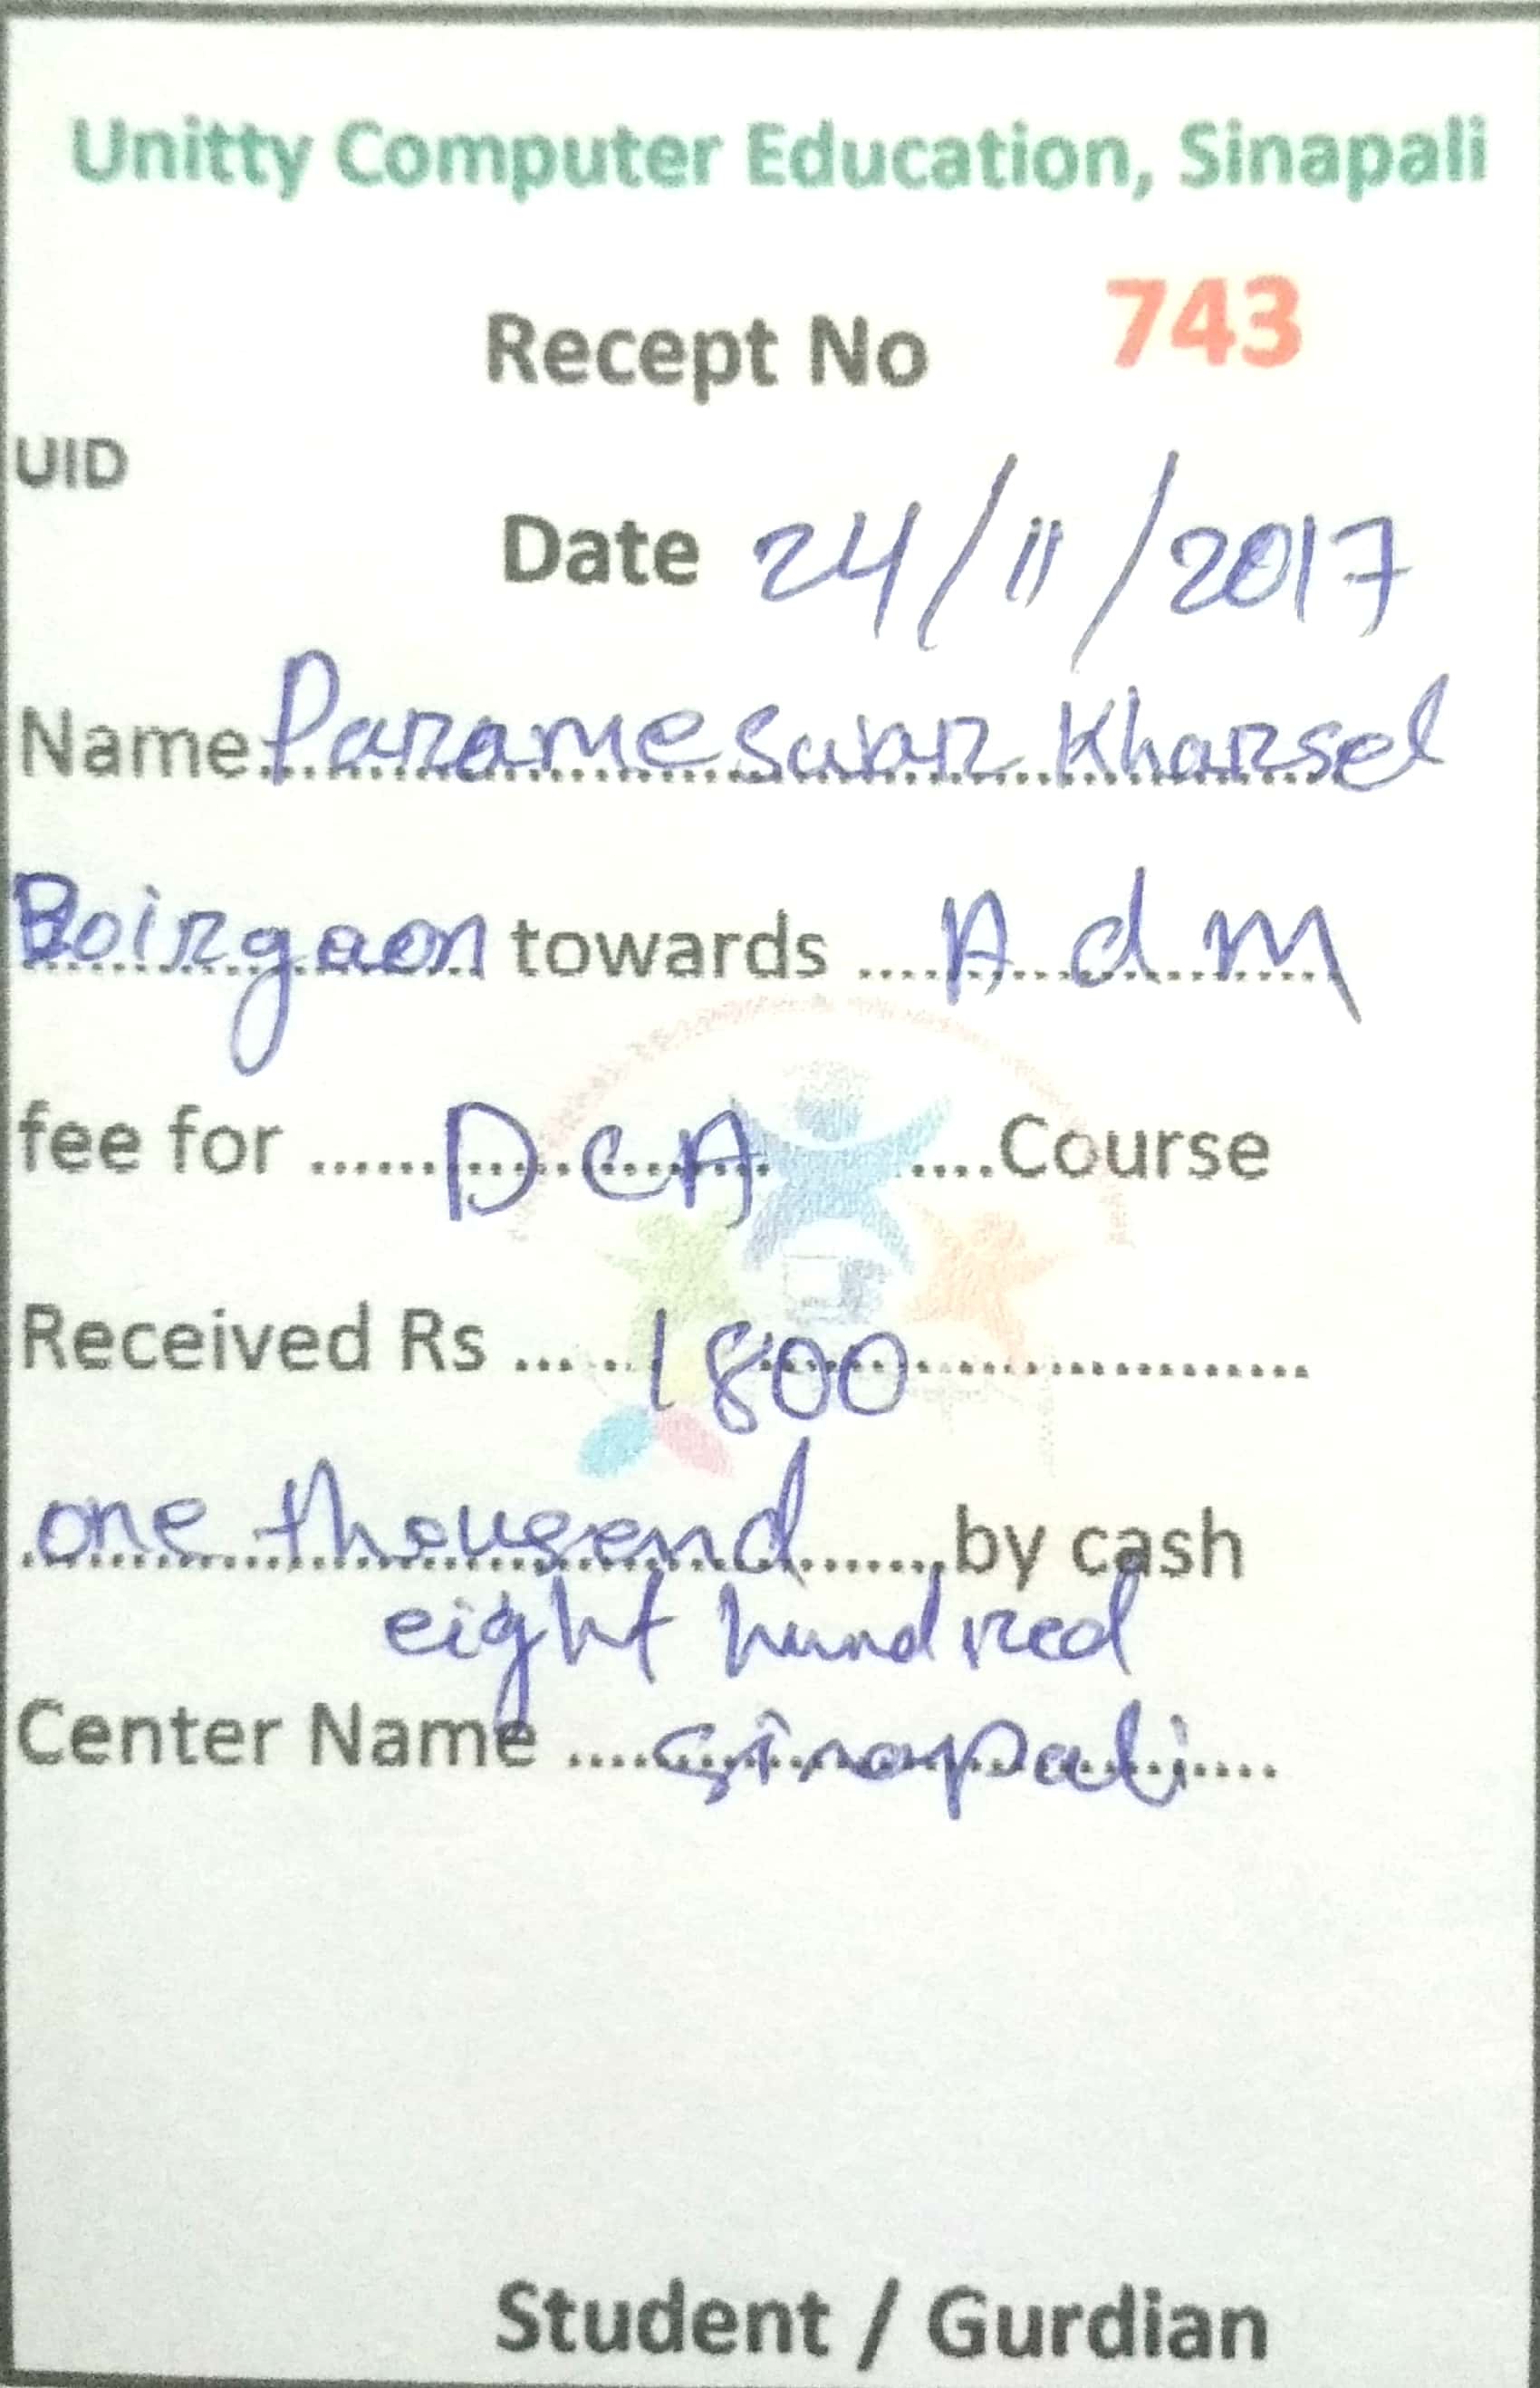 Unitty Computer Education, Sinapali
Recept No 743
UID
Date 24/11/2017
Name Parameswar Kharsel
Boirgaon towards Adm
fee for DCA Course
Received Rs 1800
one thousend by cash
eight hundred
Center Name Sinapali
Student / Gurdian